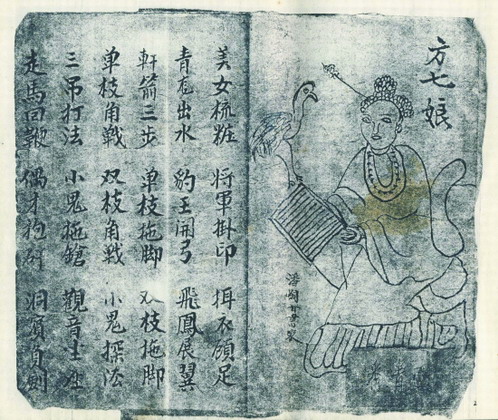 方七娘
美女梳粧 將軍掛印 衣 足
青龙出水 豹王開弓 飛鳳展翼
軒箭三步 单枝拖脚 双枝拖脚
单枝角戰 双枝角戰 小鬼探法
三吊打法 小鬼拖鎗 觀音士
走馬回鞭 洞賓負劍